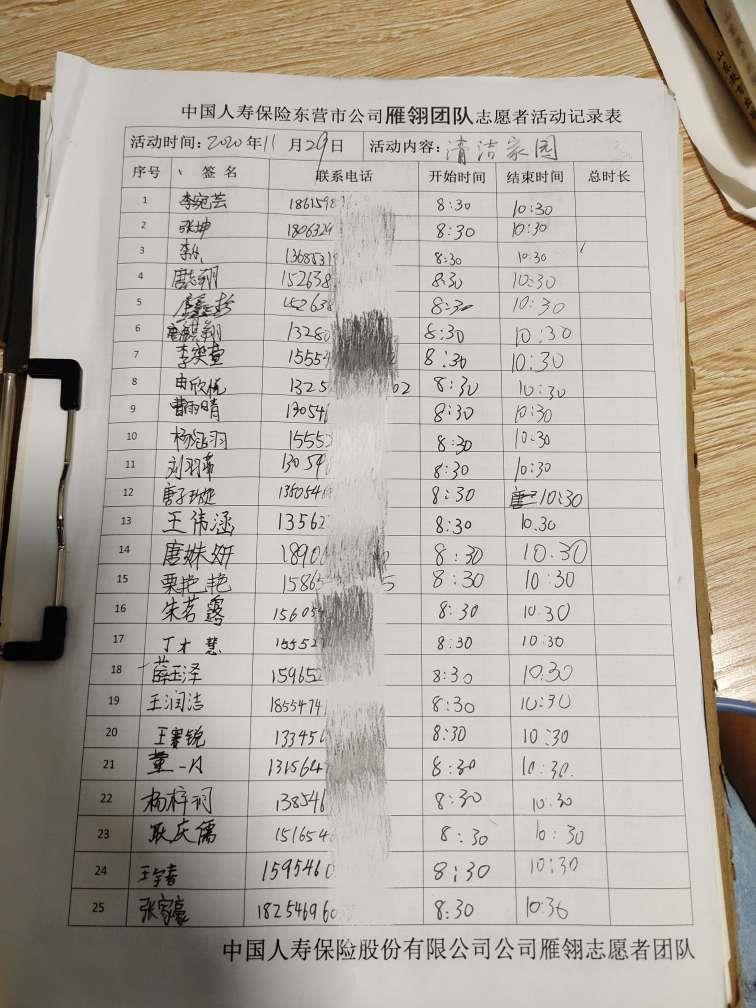 中国人寿保险东营市公司雁翎团队志愿者活动记录表
活动时间：2020年11月29日 活动内容：清洁家园
序号 签名 联系电话 开始时间 结束时间 总时长
1 李宛芸 186159 8:30 10:30
2 张坤 1806329 8:30 10:30
3 李 1368531 8:30 10:30
4 唐志翔 152638 8:30 10:30
5 152638 8:30 10:30
6 翔 13280 8:30 10:30
7 李奕萱 15554 8:30 10:30
8 由欣悦 1325 02 8:30 10:30
9 曹雨晴 130546 8:30 10:30
10 杨 羽 15552 8:30 10:30
11 刘羽 13054 8:30 10:30
12 唐子 1350546 8:30 10:30
13 王伟涵 13562 8:30 10.30
14 唐姝妍 1890 8:30 10.30
15 栗艳艳 1586 5 8:30 10:30
16 朱茗露 156054 8:30 10:30
17 丁才慧 155527 8:30 10:30
18 薛玉泽 159652 8:30 10:30
19 王润洁 1855474 8:30 10:30
20 王 锐 133456 8:30 10:30
21 董一 1315647 8:30 10:30.
22 杨梓 138546 8:30 10:30
23 耿庆儒 1516546 8:30 10:30
24 王 1595460 8:30 10:30
25 张家豪 182546960 8:30 10:30
中国人寿保险股份有限公司公司雁翎志愿者团队